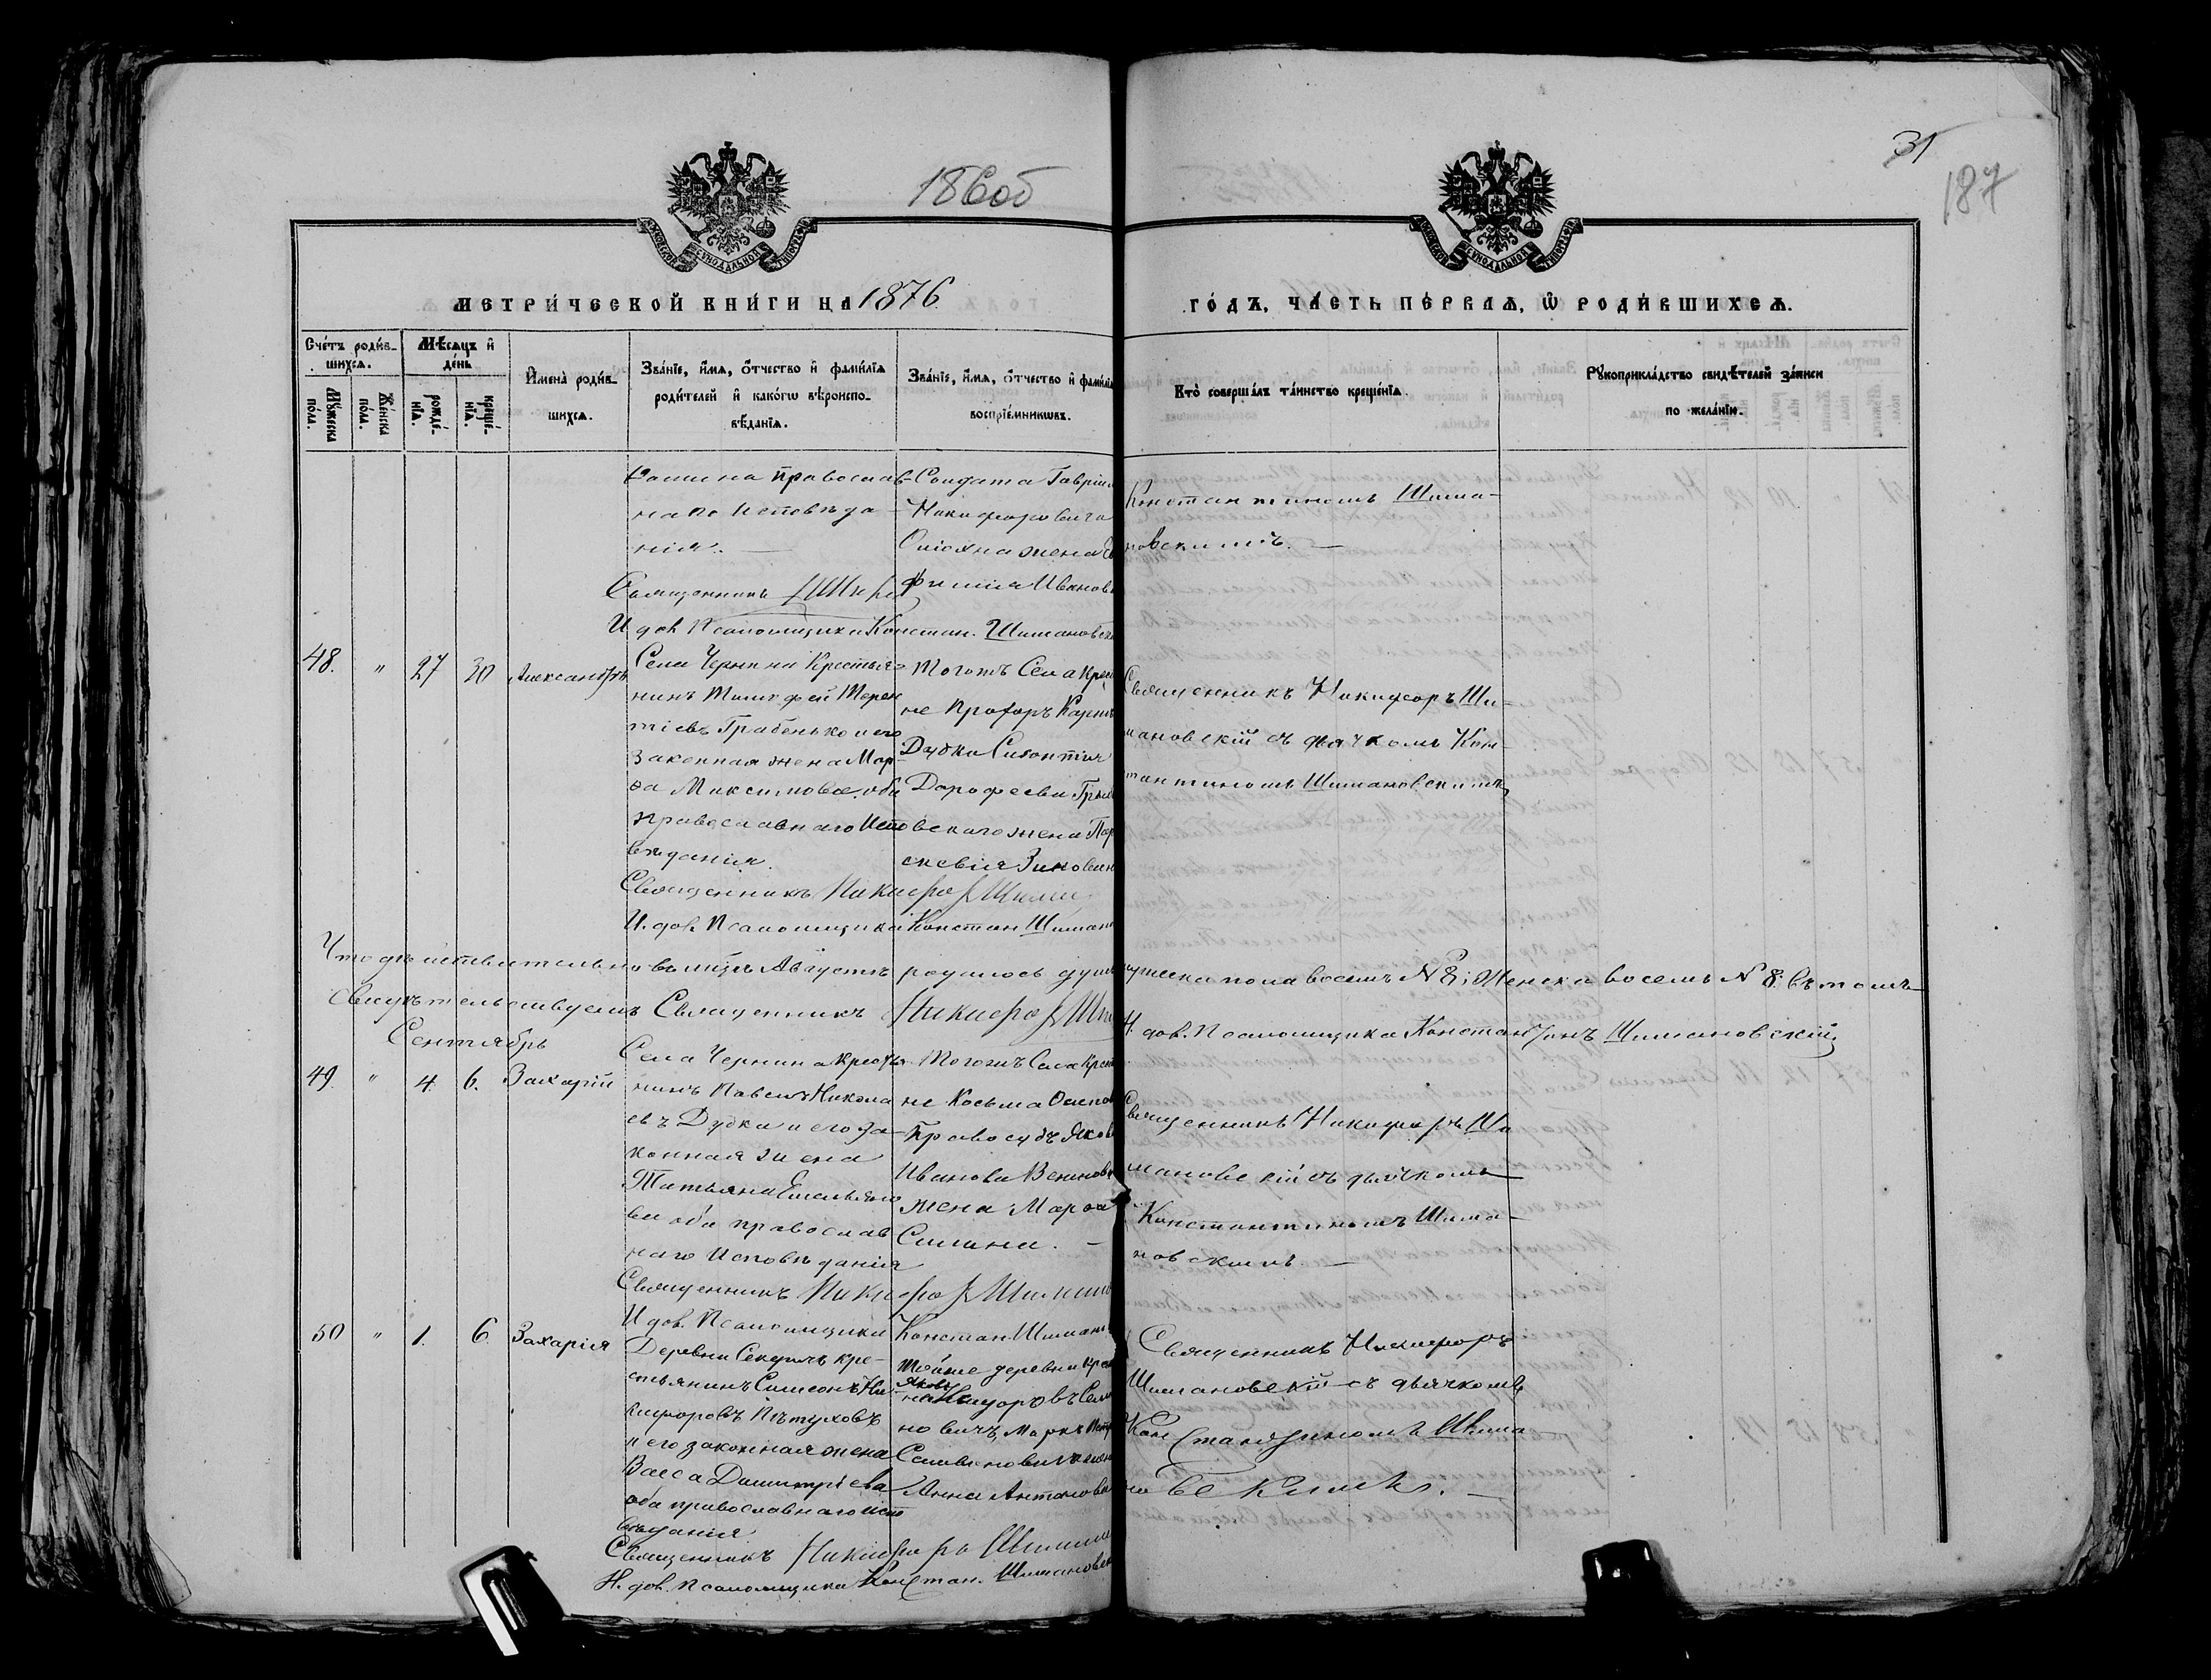 186об
31
187
МЕТРИ́ЧЕСКОЙ КНИ́ГИ НА 1876
ГО́ДЪ, ЧА́СТЬ ПЕ́РВАѦ, Ѡ РОДИ́ВШИХСѦ.
Сче́тъ роди́в-
шихсѧ.
Мѣ́сѧцъ и
де́нь
Мꙋ́жеска
по́ла.
Же́нска
по́ла.
рожде́-
нїѧ.
креще́-
нїѧ.
Имена̀ роди́в-
шихсѧ.
Зва́нїе, и́мѧ, о́тчество и фами́лїѧ
роди́телей и како́гѡ вѣроиспо-
вѣ́данїѧ.
Зва́нїе, и́мѧ, о́тчество и фами́лїѧ
воспрїе́мникѡвъ.
Кто̀ соверша́лъ та́инство креще́нїѧ.
Рꙋкоприкла́дство свидѣ́телей за́писи
по жела́нїю.
православ-
наго исповѣда-
нія. —
Солдата Гавріи
Никифоровича
жена Ев
фимія Иванов
Константиномъ Шима-
новскимъ. —
Священникъ
И дол. Псаломщика Констан. Шимановск
48. " 27 30 Александръ
Села Чернина Крестья-
нинъ Тимофей Терен
тіевъ Грабенько и его
законная жена Мар-
ѳа Максимова оба
православнаго Испо
вѣданія.
Тогожъ Села Крес
не Прохоръ Карп
Дудка
Дорофеева
жена Пар
скевія Зиновіи
Священникъ Никифоръ Ши-
мановскій съ дьячкомъ Кон-
стантиномъ Шимановскимъ
Священникъ Никифоръ Шима
И. дол. Псаломщика Констан Шиман
Что дѣйствительно въ мцѣ Августѣ родилось душъ мужеска пола восемь № 8; Женска восемь № 8. въ томъ
свидѣтельствуемъ Священникъ Никифоръ Ши
И. дол. Псаломщика Константинъ Шимановскій
Сентябрь
49. " 4. 6. Захарій
Села Чернина Крестья-
нинъ Павелъ Никола
евъ Дудка и его за-
конная жена
Татьяна Емельяно
ва оба православ
наго Исповѣданія
Тогожъ Села Крест
не Косьма Осипов
Правосудъ Яков
Иванова
жена Марѳа
Симина. —
Священникъ Никифоръ Ши
мановскій съ дьячкомъ
Константиномъ Шима-
новскимъ. —
Священникъ Никифоръ Шиман
И дол. Псаломщика Констан. Шиман
50 " 1. 6. Захарія
Деревни Секунь кре-
стьянинъ Симеонъ Ни
кифоровъ Пѣтуховъ
и его законная жена
Васса Димитріева
оба православнаго испо
вѣданія
тойже деревни крес
Яковъ
новичъ, Маркъ
Анна Антонова
Священникъ Никифоръ
Шимановскій съ дьячкомъ
Константиномъ Шима-
новскимъ. —
Священникъ Никифоръ Шиман
И. дол. Псаломщика Констан. Шимановск